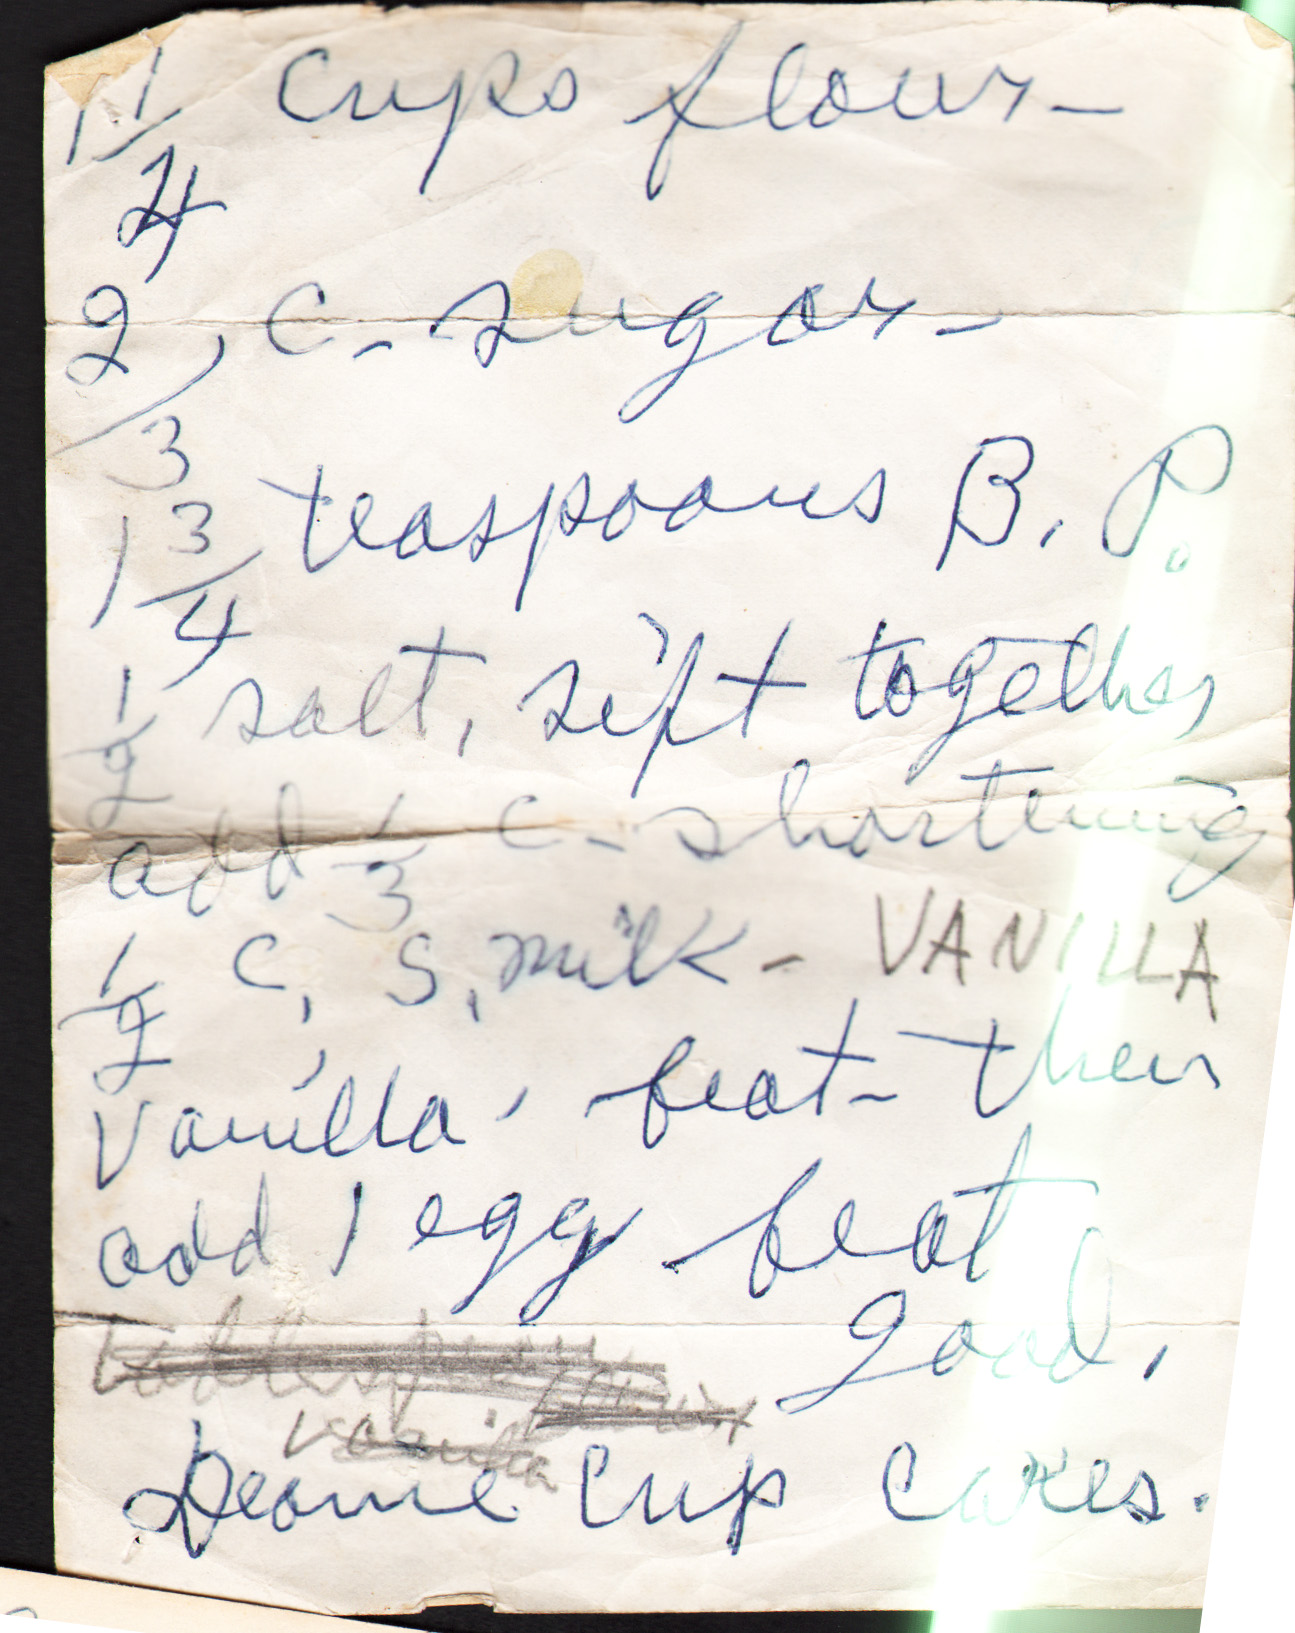 1 1/4 Cups flour-
2/3, C- sugar-
1 3/4 teaspoons B. P.
1/2 salt, sift together
add 1/3 C- shortening
1/2 C, S, milk - VANILLA
Vanilla, beat- then
add 1 egg beat
good.
vanilla
Cup Cakes.